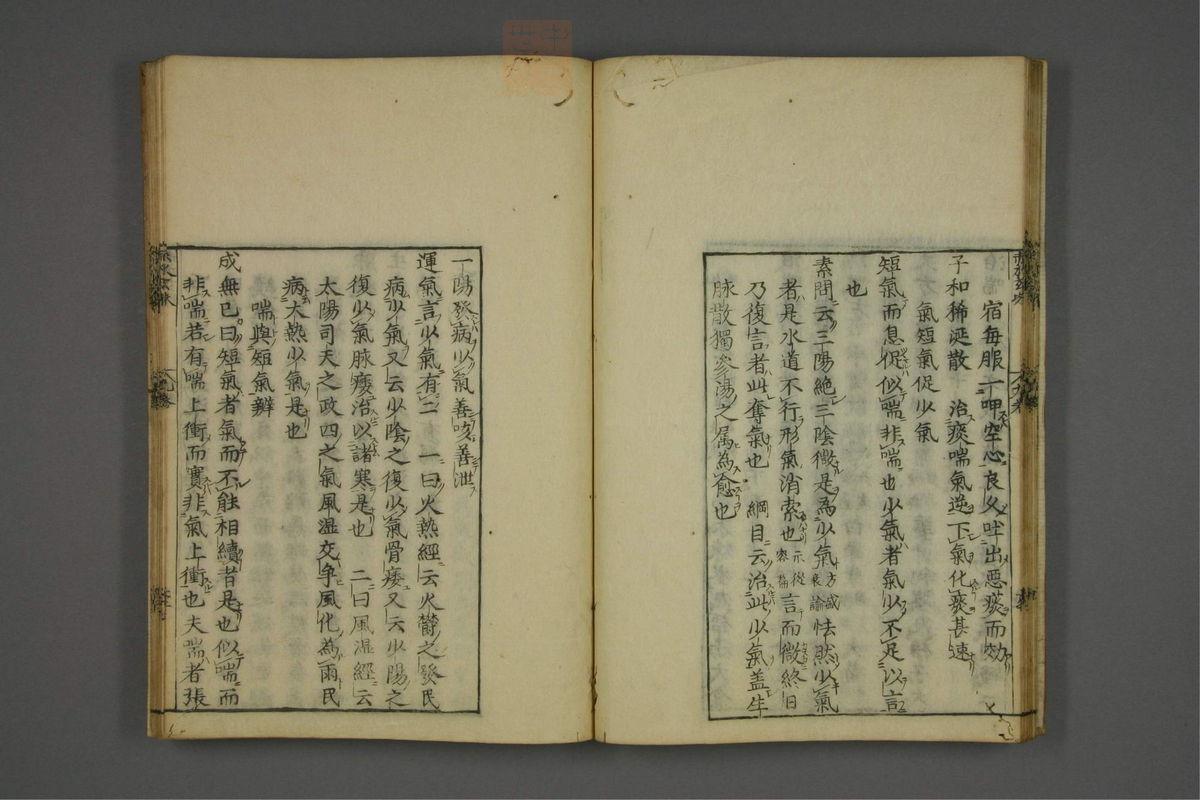 宿每服一呷空心良久吐出惡痰而効
子和稀涎散　治痰喘氣逆下氣化痰甚速
氣短氣促少氣
短氣而息促似喘非喘也少氣者氣少不足以言
也
素問云三陽絕三陰微是為少氣方盛衰論怯然少氣
者是水道不行形氣消索也示從容論言而微終日
乃復言者此奪氣也　綱目云治此少氣盖生
脉散獨參湯之属為愈也
一陽發病少氣善咳善泄
運氣言少氣有二　一曰火熱經云火鬱之發民
病少氣又云少陰之復少氣骨痿又云少陽之
復少氣脉痿治以諸寒是也　二曰風湿經云
太陽司天之政四之氣風湿交争風化為雨民
病大熱少氣是也
喘與短氣辨
成無已曰短氣者氣而不能相續者是也似喘而
非喘若有喘上衝而實非氣上衝也夫喘者張